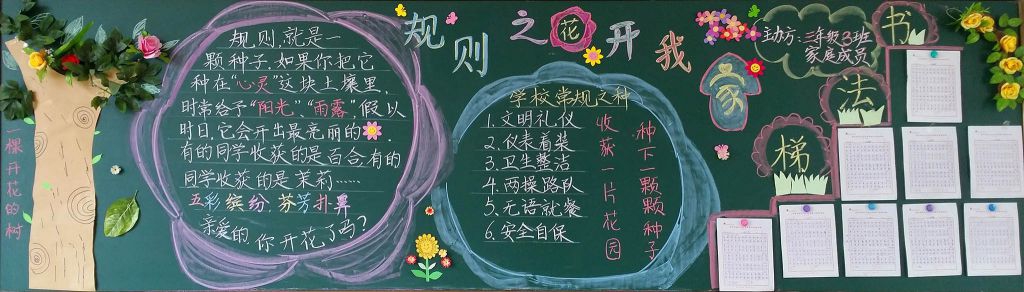 一棵开花的树
规则,就是一
颗种子.如果你把它
种在“心灵”这块土壤里,
时常给予“阳光”、“雨露”,假以
时日,它会开出最亮丽的
有的同学收获的是百合.有的
同学收获的是茉莉……
五彩缤纷,芬芳扑鼻
亲爱的,你开花了吗?
规则之花开我家
学校常规之种
1.文明礼仪
2.仪表着装
3.卫生整洁
4.两操路队
5.无语就餐
6.安全自保
种下一颗颗种子
收获一片花园
主办方:三年级3班
家庭成员
书
法
梯